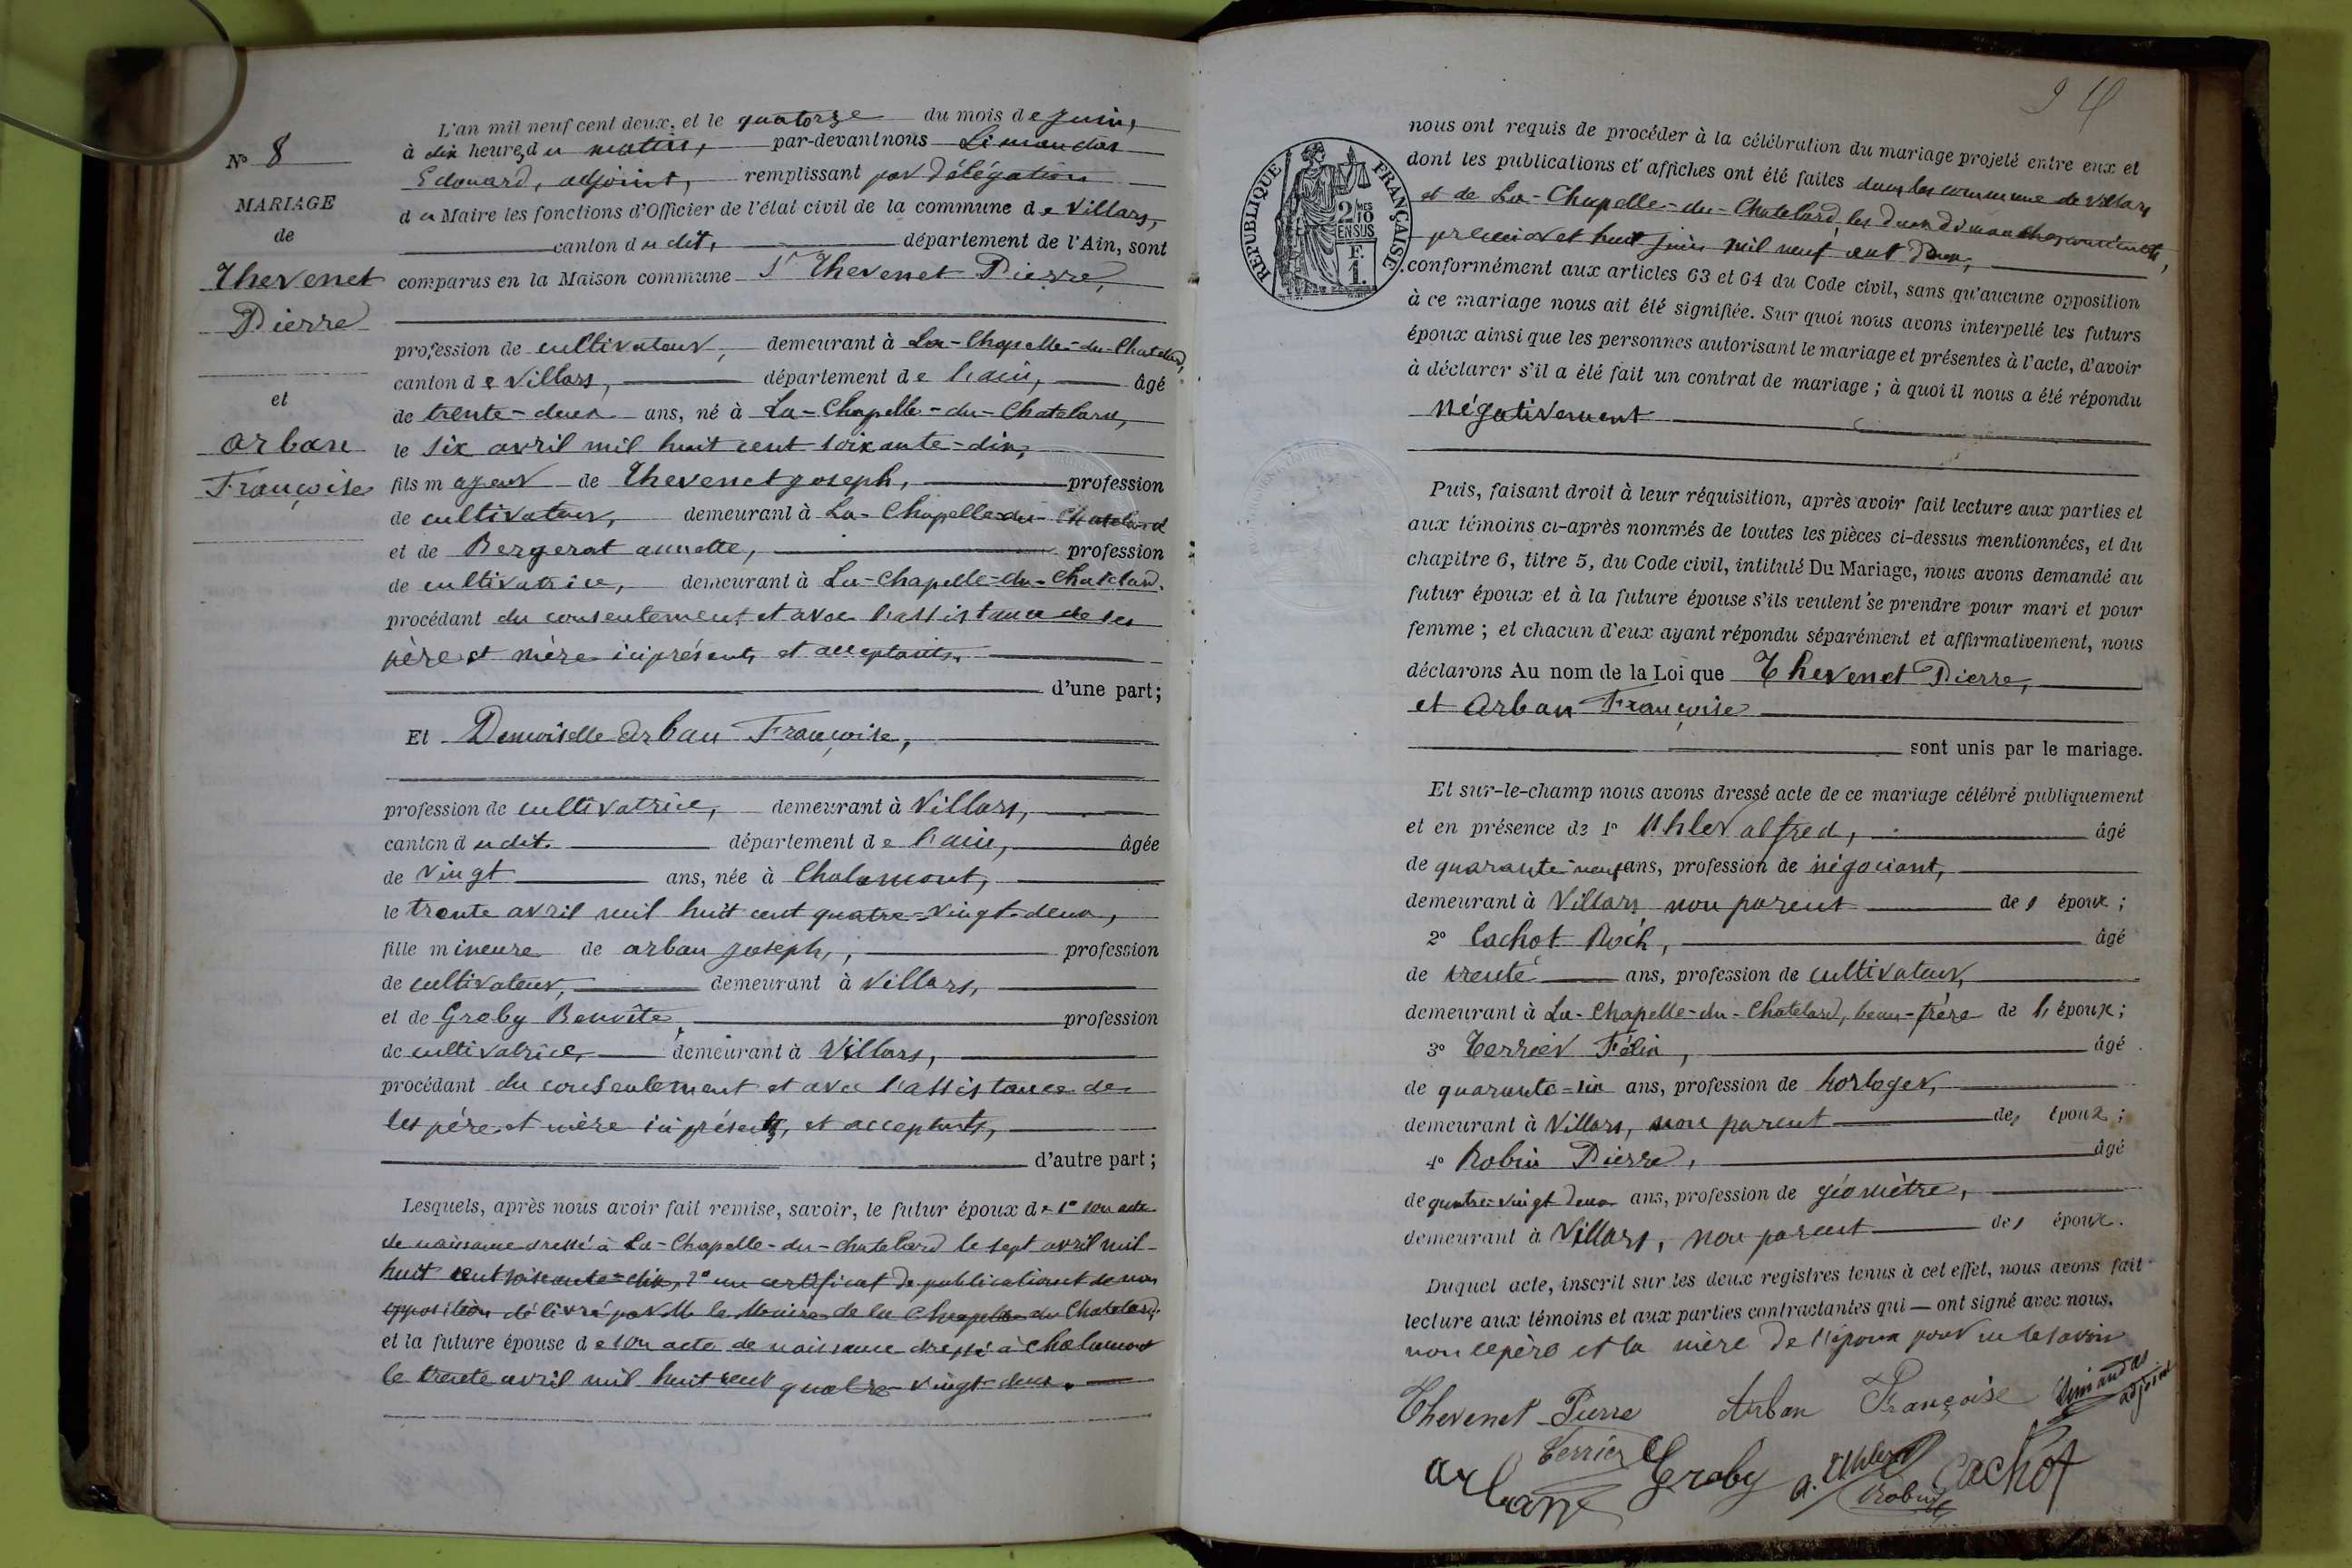 N° 8
MARIAGE
de
Thevenet
Pierre
et
Arban
Françoise
L'an mil neuf cent deux, et le quatorze du mois de Juin,
à dix heures du matin, par-devant nous Limandas
Edouard, adjoint, remplissant par délégation
du Maire les fonctions d'Officier de l'état civil de la commune de Villars,
canton du dit, département de l'Ain, sont
comparus en la Maison commune Sr Thevenet Pierre,
profession de cultivateur, demeurant à La-Chapelle-du-Chatelard,
canton de Villars, département de l'ain, âgé
de trente-deux ans, né à La-Chapelle-du-Chatelard,
le six avril mil huit cent soixante-dix,
fils majeur de Thevenet Joseph, profession
de cultivateur, demeurant à La-Chapelle-du-Chatelard
et de Bergerat annette, profession
de cultivatrice, demeurant à La-Chapelle-du-Chatelard.
procédant du consentement et avec l'assistance de ses
père et mère ici présents et acceptants,
d'une part;
Et Demoiselle Arban Françoise,
profession de cultivatrice, demeurant à Villars,
canton du dit. département de l'ain, âgée
de vingt ans, née à Chalamont,
le trente avril mil huit cent quatre-vingt-deux,
fille mineure de arban Joseph, profession
de cultivateur, demeurant à Villars,
et de Groby Benoîte, profession
de cultivatrice, demeurant à Villars,
procédant du consentement et avec l'assistance de
ses père et mère ici présents, et acceptants,
d'autre part;
Lesquels, après nous avoir fait remise, savoir, le futur époux de 1° son acte
de naissance dressé à La-Chapelle-du-chatelard le sept avril mil-
huit cent soixante-dix, 2° un certificat de publication et de non
opposition délivré par M le Maire de la Chapelle du Chatelard,
et la future épouse de son acte de naissance dressé à Chalamont
le trente avril mil huit cent quatre-vingt-deux.
RÉPUBLIQUE FRANÇAISE
2 MES
10
EN SUS
F.
1.
nous ont requis de procéder à la célébration du mariage projeté entre eux et
dont les publications et affiches ont été faites dans les commune de Villars
et de La-Chapelle-du-Chatelard, les deux dimanches consécutifs,
premier et huit juin mil neuf cent deux,
conformément aux articles 63 et 64 du Code civil, sans qu'aucune opposition
à ce mariage nous ait été signifiée. Sur quoi nous avons interpellé les futurs
époux ainsi que les personnes autorisant le mariage et présentes à l'acte, d'avoir
à déclarer s'il a été fait un contrat de mariage; à quoi il nous a été répondu
négativement
Puis, faisant droit à leur réquisition, après avoir fait lecture aux parties et
aux témoins ci-après nommés de toutes les pièces ci-dessus mentionnées, et du
chapitre 6, titre 5, du Code civil, intitulé Du Mariage, nous avons demandé au
futur époux et à la future épouse s'ils veulent se prendre pour mari et pour
femme; et chacun d'eux ayant répondu séparément et affirmativement, nous
déclarons Au nom de la Loi que Thevenet Pierre,
et Arban Françoise
sont unis par le mariage.
Et sur-le-champ nous avons dressé acte de ce mariage célébré publiquement
et en présence de 1° Uhler alfred, âgé
de quarante-neuf ans, profession de négociant,
demeurant à Villars non parent des époux;
2° Cachot Roch, âgé
de trente ans, profession de cultivateur,
demeurant à La-Chapelle-du-Chatelard, beau-frère de l'époux;
3° Terrier Félix, âgé
de quarante-six ans, profession de horloger,
demeurant à Villars, non parent des époux;
4° Robin Pierre, âgé
de quatre-vingt deux ans, profession de géomètre,
demeurant à Villars, non parent des époux.
Duquel acte, inscrit sur les deux registres tenus à cet effet, nous avons fait
lecture aux témoins et aux parties contractantes qui — ont signé avec nous,
non le père et la mère de l'époux pour ne le savoir
Thevenet Pierre Arban Françoise Limandas adjoint
Arban Terrier Groby A. Uhler Robin Cachot